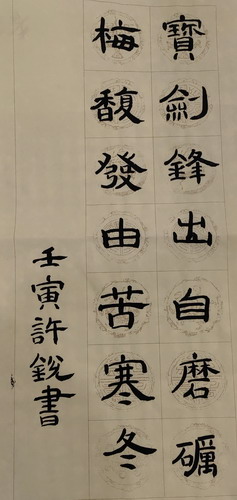 寶劍鋒出自磨礪
梅馥發由苦寒冬
壬寅許銳書